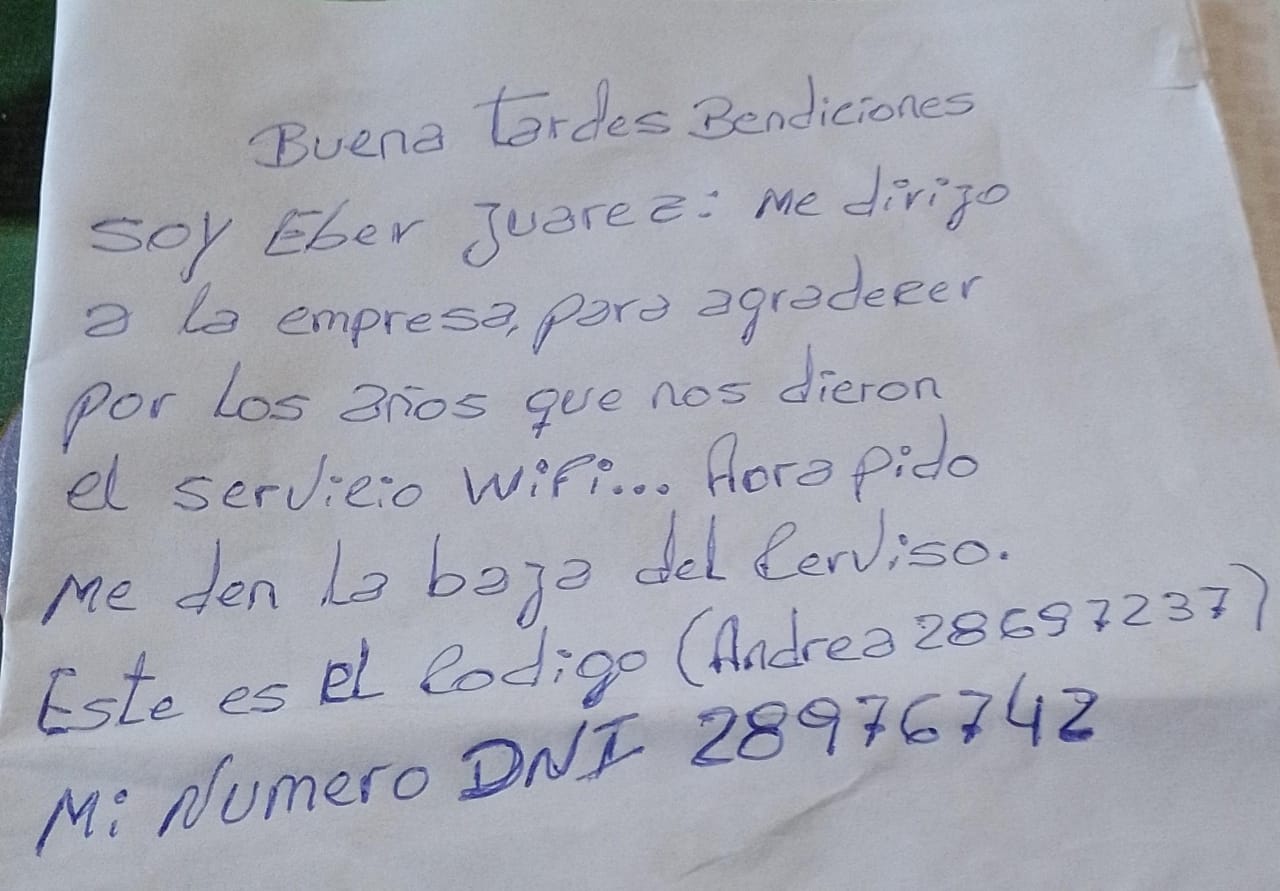 Buena tardes Bendiciones
soy Eber Juarez: Me dirijo
a la empresa, para agradecer
por los años que nos dieron
el servicio wifi... Aora pido
Me den la baja del cerviso.
Este es el codigo (Andrea 28697237)
Mi Numero DNI 28976742